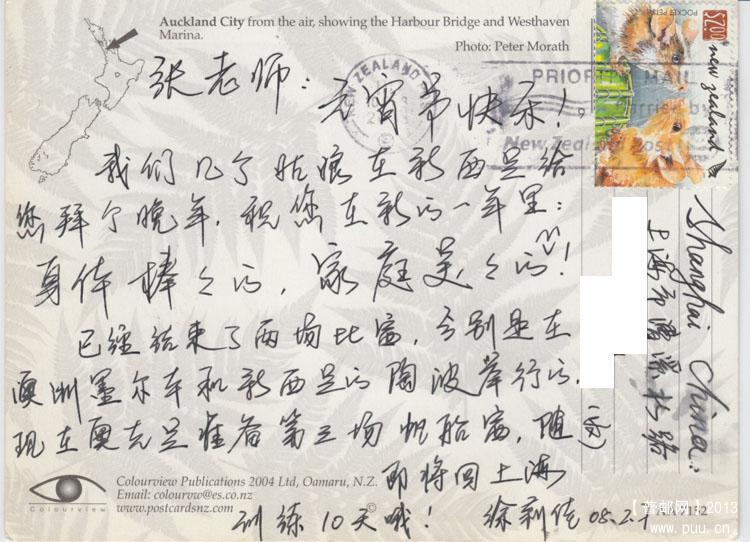 Auckland City from the air, showing the Harbour Bridge and Westhaven
Marina.
Photo: Peter Morath
张老师：元宵节快乐！
我们几个姑娘在新西兰给
您拜个晚年，祝您在新的一年里：
身体棒々的，家庭美々的！
已经结束了两场比赛，分别是在
澳洲墨尔本和新西兰的陶波举行的，
现在奥克兰准备第三场帆船赛，随(后)
即将回上海
训练10天哦！
徐莉佳 08.2.
Colourview Publications 2004 Ltd, Oamaru, N.Z.
Email: colourvw@es.co.nz
www.postcardsnz.com
©
Colourview
NEW ZEALAND
PRIORITY MAIL
New Zealand Post
POCKET PETS
$2.00
new zealand
Shanghai China:
上海市
路
【普邮网】2013
www.puu.cn